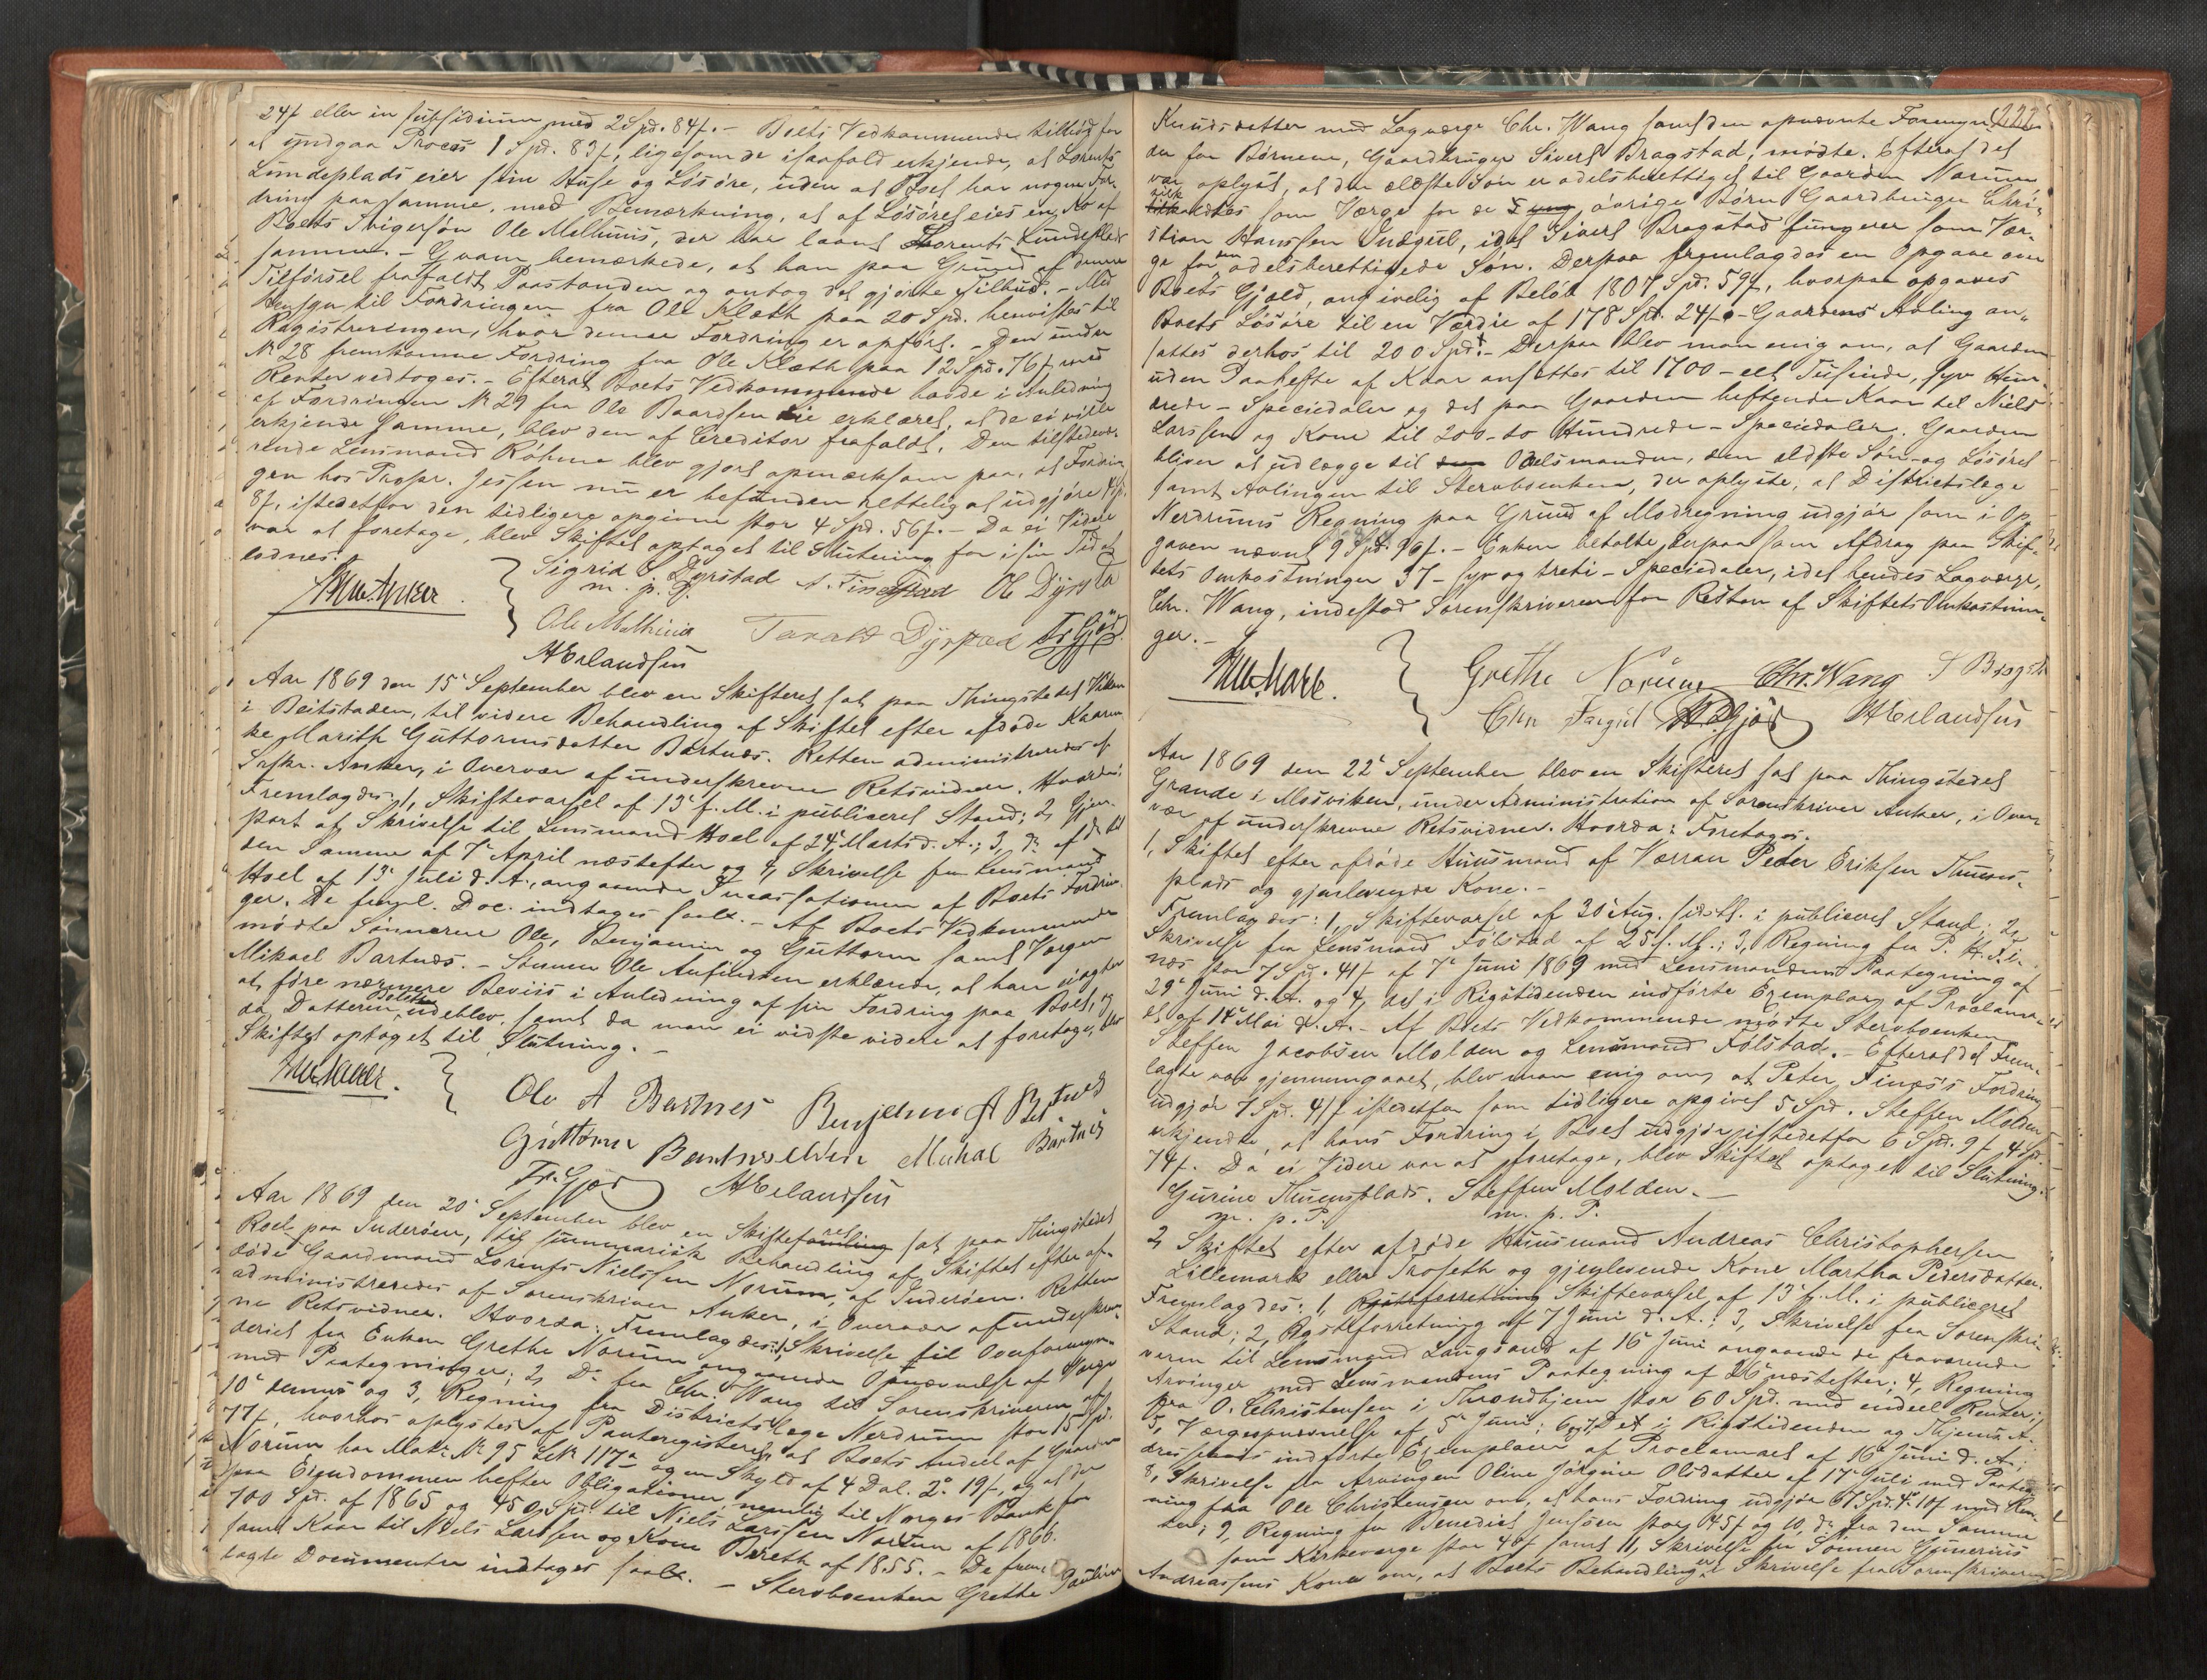 24ſ eller in subsidium med 2 Spd. 84ſ. – Boets Vedkommende tilbød for
at undgaa Proces 1 Spd. 83ſ, ligesom de isaafald erkjende, at Lorents
Lundeplads eier sine Huse og Løsøre, uden at Boet har nogen For-
dring paa samme, med Bemærkning, at af Løsøret eies en Ko af
Boets Svigersøn Ole Melhuus, der har laant Lorents Lundeplads
samme. – Qvam bemærkede, at han paa Grund af denne
Tilførsel frafaldt Paastanden og antog det gjorte Tilbud. – Med
Hensyn til Fordringen fra Ole Kleth paa 20 Spd. henvistes til
Registreringen, hvor denne Fordring er opført. – Den under
No 28 fremkomne Fordring fra Ole Klæth paa 12 Spd. 76ſ med
Renter vedtoges. – Efterat Boets Vedkommende havde i Anledning
af Fordringen No 29 fra Ole Baardsen erklæret, at de ei ville
erkjende samme, blev den af Creditor frafaldt. Den tilstedevæ-
rende Lensmand Røhme blev gjort opmærksom paa, at Fordrin-
gen hos Propr. Jessen nu er befunden rettelig at udgjøre 4 Spd.
8ſ, istedetfor den tidligere opgivne stor 4 Spd. 56ſ. – Da ei Videre
var at foretage, blev Skiftet optaget til Slutning for i sin Tid at
lodnes.
Anker. Sigrid Dyrstad Ole Dyrsta
m. p. P.
Ole Melhuus Tarald Dyrstad Fr. Gjør
H Erlandsen
Aar 1869 den 15de September blev en Skifteret sat paa Thingstedet Viken
i Beitstaden, til videre Behandling af Skiftet efter afdøde Kaaren-
ke Marith Guttormsdatter Bartnes. Retten administreredes af
Srskr. Anker, i Overvær af underskrevne Retsvidner. Hvorda:
Fremlagdes: 1, Skiftevarsel af 13de f. M. i publiceret Stand; 2, Gjen-
part af Skrivelse til Lensmand Hoel af 24de Marts d. A.; 3, Do af do til
den Samme af 7de April næstefter og 4, Skrivelse fra Lensmand
Hoel af 13de Juli d. A., angaaende Incassationen af Boets Fordrin-
ger. De fremL. Doc. indtages saal. – Af Boets Vedkommende
mødte Sønnerne Ole, Benjamin og Guttorm samt Værgen
Mikael Bartnes. – Sønnen Ole Anfindsen erklærede, at han ei agter
at føre nærmere Beviis i Anledning af sin Fordring paa Boet, og
da Datteren udeblev, samt da man ei vidste videre at foretage, blev
Skiftet optaget til Slutning. –
Anker. Ole A Bartnes Benjamin A Bartnes
Guttorm Bartnes Mikal Bartnes
Fr. Gjør H Erlandsen
Aar 1869 den 20de September blev en Skifteret sat paa Thingstedet
Roel paa Inderøen, til summarisk Behandling af Skiftet efter af-
døde Gaardmand Lorents Nielssen Norum, af Inderøen. Retten
administreredes af Sorenskriver Anker, i Overvær af underskrev-
ne Retsvidner. Hvorda: Fremlagdes: 1, Skrivelse til Overformyn-
deriet fra Enken Grethe Norum angaaende Opnævnelse af Værge
med Paategninger; 2, Do fra Chr. Wang til Sorenskriveren af
10de dennes og 3, Regning fra Districtslæge Nerdrum stor 15 Spd.
77ſ, hvorhos oplystes af Panteregisteret, at Boets Andeel af Gaarden
Norum har Matr. No 95 Lno 117a og en Skyld af 4 Dal. 2o 19ſ, og at der
paa Eiendommen hefter Obligationer, nemlig til Norges Bank for
700 Spd. af 1865 og 450 Spd. til Niels Larssen Norum af 1866.
samt Kaar til Niels Larssen og Kone Bereth af 1855. – De frem-
lagte Documenter indtages saal. – Stervboenken Grethe Pauline
222
Knudsdatter med Lagværge Chr. Wang samt den opnævnte Formyn
der for Børnene, Gaardbruger Sivert Bragstad, mødte. Efterat det
var oplyst, at den ældste Søn er odelsberettiget til Gaarden Norum
som Værge for de øvrige Børn Gaardbruger Chri-
stian Hanssen, idet Sivert Bragstad fungerer som Vær-
ge for den odelsberettigede Søn. Derpaa fremlagdes en Opgave over
Boets Gjæld, angivelig af Beløb 1807 Spd. 59ſ, hvorpaa opgaves
Boets Løsøre til en Værdie af 178 Spd. 24ſ – Gaardens Avling an-
sattes derhos til 200 Spd. – Derpaa blev man enig om, at Gaarden
uden Paahefte af Kaar ansættes til 1700 – et Tusinde, syv Hun-
drede – Speciedaler og det paa Gaarden heftende Kaar til Niels
Larssen og Kone til 200 – to Hundrede – Speciedaler. Gaarden
bliver at udlægge til Odelsmanden, den ældste Søn – og Løsøret
samt Avlingen til Stervboenken, der oplyste, at Districtslæge
Nerdrums Regning paa Grund af Modregning udgjør som i Op-
gaven nævnt 9 Spd. 96ſ. – Enken betalte derpaa som Afdrag paa Skif-
tets Omkostninger 37 – syv og treti – Speciedaler, idet hendes Lagværge,
Chr. Wang, indestod Sorenskriveren for Resten af Skiftets Omkostnin-
ger. –
Anker. Grethe Norum Chr. Wang S Bragsta
Chr Fr Gjør H Erlandsen
Aar 1869 den 22de September blev en Skifteret sat paa Thingstedet
Grande i Mosviken, under Administration af Sorenskriver Anker, i Over-
vær af underskrevne Retsvidner. Hvorda: Foretoges:
1, Skiftet efter afdøde Huusmand af Værran Peder Eriksen Thuens-
plads og gjenlevende Kone. –
Fremlagdes: 1, Skiftevarsel af 30te Aug. sidstl. i publiceret Stand; 2,
Skrivelse fra Lensmand Følstad af 25 f. M.; 3, Regning fra P. H. Fi-
næs stor 7 Spd. 41ſ af 7de Juni 1869 med Lensmandens Paategning af
29de Juni d. A. og 4, det i Rigstidenden indførte Exemplar af Proclama-
et af 14de Mai d. A. – Af Boets Vedkommende mødte Stervboenken
Steffen Jacobsen Molden og Lensmand Følstad. – Efterat det Frem-
lagte var gjennemgaaet, blev man enig om, at Peter Finæs's Fordring
udgjør 7 Spd. 41ſ istedetfor som tidligere opgivet 5 Spd. Steffen Molden
erkjendte, at hans Fordring i Boet udgjør istedetfor 6 Spd. 9ſ 4 Spd.
74ſ. Da ei Videre var at foretage, blev Skiftet optaget til Slutning.
Gurine Thuensplads. Steffen Molden. –
m. p. P. m. p. P.
2, Skiftet efter afdøde Huusmand Andreas Christophersen
Lillemark eller Troseth og gjenlevende Kone Martha Pedersdatter.
Fremlagdes: 1, Skiftevarsel af 13de f. M. i publiceret
Stand; 2, Rgstrforretning af 7 Juni d. A.; 3, Skrivelse fra Sorenskri-
veren til Lensmand Langsand af 16de Juni angaaende de fraværende
Arvinger med Lensmandens Paategning af 26de næstefter; 4, Regning
fra O. Christensen i Throndhjem stor 60 Spd. med endeel Renter;
5, Værgeopnævnelse af 5te Juni; 6 og 7, Det i Rigstidenden og Thjems A-
dresseavis indførte Exemplarer af Proclamaet af 16de Juni d. A.;
8, Skrivelse fra Arvingen Oline Jørgine Olsdatter af 17de Juli med Paateg-
ning fra Ole Christensen om, at hans Fordring udgjør 67 Spd. 4o 10ſ med Ren-
ter; 9, Regning fra Benedict Jenssen stor 45ſ og 10, do fra den Samme
som Kirkeværge stor 40ſ samt 11, Skrivelse fra Sønnen Gunerius
Andreassens Kone om, at Boets Behandling Skrivelse fra Sorenskriveren